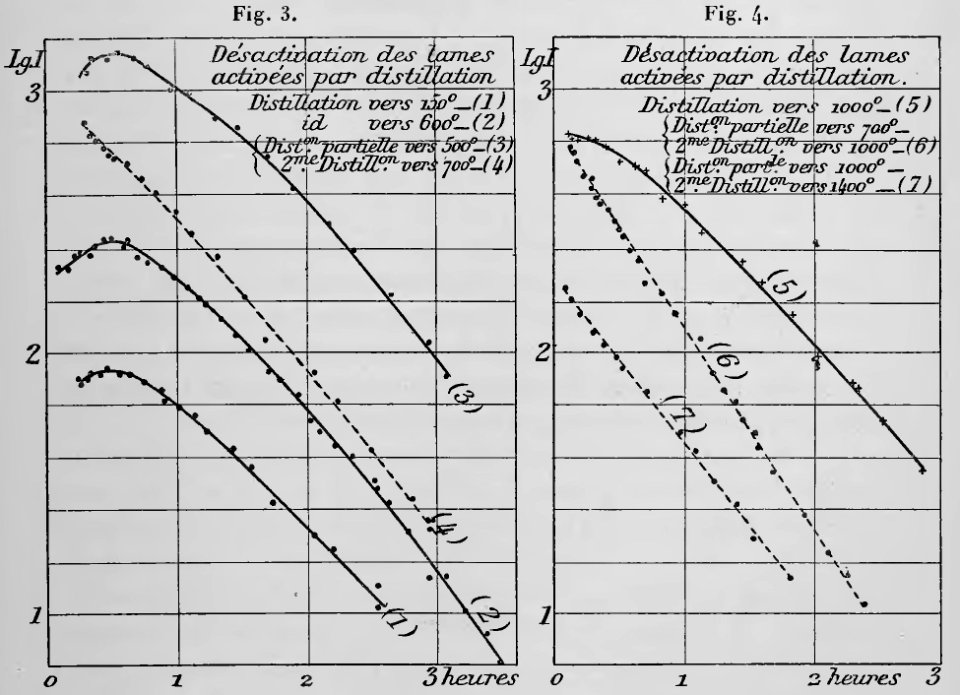 Fig. 3.
LgI
Désactivation des lames
activées par distillation
Distillation vers 150°_(1)
id vers 600°_(2)
Dist.on partielle vers 500°_(3)
2.me Distill.on vers 700°_(4)
3
2
1
(3)
(4)
(2)
(1)
0 1 2 3 heures
Fig. 4.
LgI
Désactivation des lames
activées par distillation.
Distillation vers 1000°_(5)
Dist.on partielle vers 700°_
2.me Distill.on vers 1000°_(6)
Dist.on part.le vers 1000°_
2.me Distill.on vers 1400°_(7)
3
2
1
(5)
(6)
(7)
0 1 2 heures 3